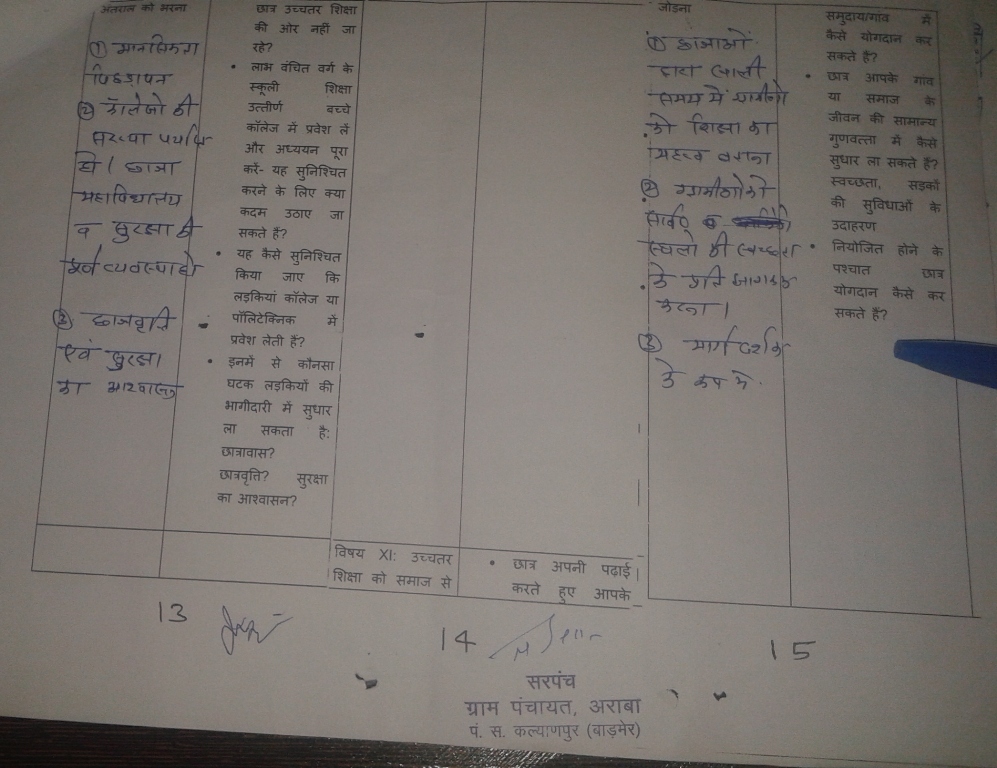 अंतराल को भरना
① मानसिकता
पिछड़ापन
② कॉलेजो की
संख्या पर्याप्त
हो। छात्रा
महाविद्यालय
व सुरक्षा की
पूर्ण व्यवस्था हो
③ छात्रवृति
एवं सुरक्षा
का आश्वासन
छात्र उच्चतर शिक्षा
की ओर नहीं जा
रहे?
• लाभ वंचित वर्ग के
स्कूली शिक्षा
उत्तीर्ण बच्चे
कॉलेज में प्रवेश लें
और अध्ययन पूरा
करें- यह सुनिश्चित
करने के लिए क्या
कदम उठाए जा
सकते हैं?
• यह कैसे सुनिश्चित
किया जाए कि
लड़कियां कॉलेज या
पॉलिटेक्निक में
प्रवेश लेती हैं?
• इनमें से कौनसा
घटक लड़कियों की
भागीदारी में सुधार
ला सकता है:
छात्रावास?
छात्रवृति? सुरक्षा
का आश्वासन?
विषय XI: उच्चतर
शिक्षा को समाज से
• छात्र अपनी पढ़ाई
करते हुए आपके
जोड़ना
① छात्राओं
द्वारा खाली
समय में ग्रामीणो
को शिक्षा का
महत्व बताना
② ग्रामीणो को
सार्व०
स्थलो की स्वच्छता
के प्रति जागरूक
करना।
③ मार्गदर्शक
के रूप मे.
समुदाय/गांव में
कैसे योगदान कर
सकते हैं?
• छात्र आपके गांव
या समाज के
जीवन की सामान्य
गुणवत्ता में कैसे
सुधार ला सकते हैं?
स्वच्छता, सड़कों
की सुविधाओं के
उदाहरण
• नियोजित होने के
पश्चात छात्र
योगदान कैसे कर
सकते हैं?
13
14
15
सरपंच
ग्राम पंचायत, अराबा
पं. स. कल्याणपुर (बाड़मेर)